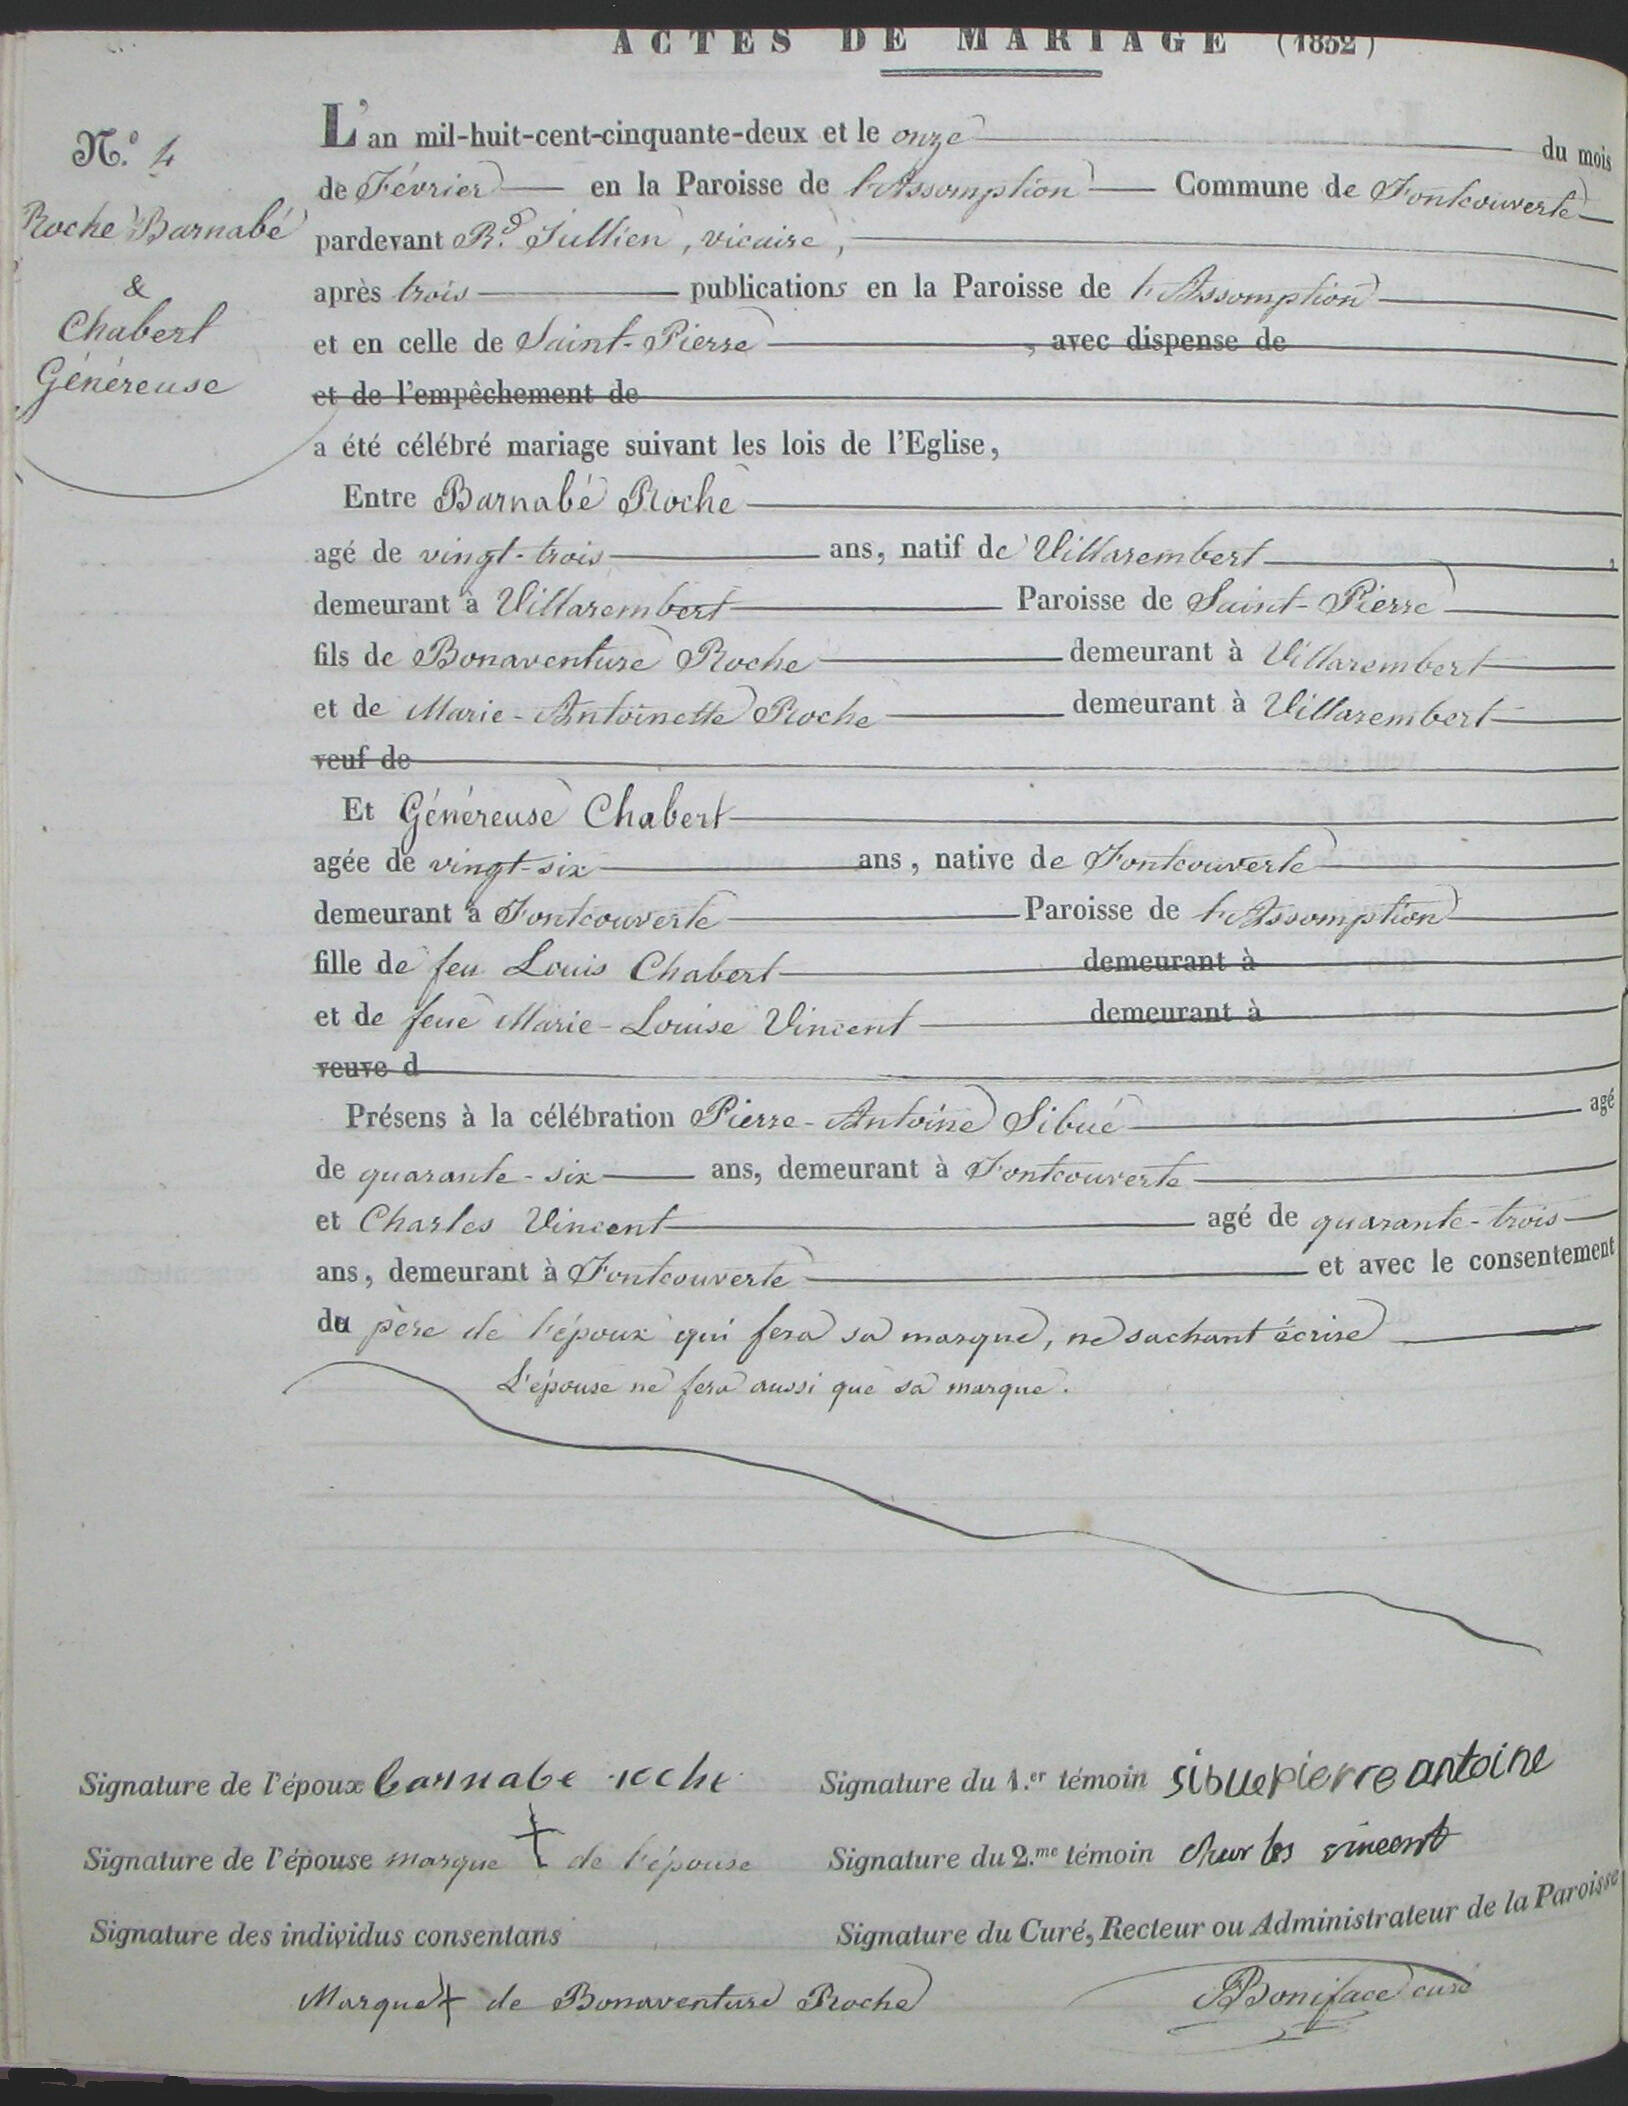 ACTES DE MARIAGE (1852)
N.º 4
Roche Barnabé
&
Chabert
Généreuse
L'an mil-huit-cent-cinquante-deux et le onze du mois
de Février en la Paroisse de l'Assomption Commune de Fontcouverte
pardevant R.d Jullien, vicaire,
après trois publications en la Paroisse de l'Assomption
et en celle de Saint-Pierre, avec dispense de
et de l'empêchement de
a été célébré mariage suivant les lois de l'Eglise,
Entre Barnabé Roche
agé de vingt-trois ans, natif de Villarembert,
demeurant à Villarembert Paroisse de Saint-Pierre
fils de Bonaventure Roche demeurant à Villarembert
et de Marie-Antoinette Roche demeurant à Villarembert
veuf de
Et Généreuse Chabert
agée de vingt-six ans, native de Fontcouverte
demeurant à Fontcouverte Paroisse de l'Assomption
fille de feu Louis Chabert demeurant à
et de feue Marie-Louise Vincent demeurant à
veuve d
Présens à la célébration Pierre-Antoine Sibué agé
de quarante-six ans, demeurant à Fontcouverte
et Charles Vincent agé de quarante-trois
ans, demeurant à Fontcouverte et avec le consentement
du père de l'époux qui fera sa marque, ne sachant écrire
L'épouse ne fera aussi que sa marque.
Signature de l'époux barnabe roche
Signature du 1.er témoin sibue pierre antoine
Signature de l'épouse marque + de l'épouse
Signature du 2.me témoin charles vincent
Signature des individus consentans
Signature du Curé, Recteur ou Administrateur de la Paroisse
Marque + de Bonaventure Roche
Boniface curé